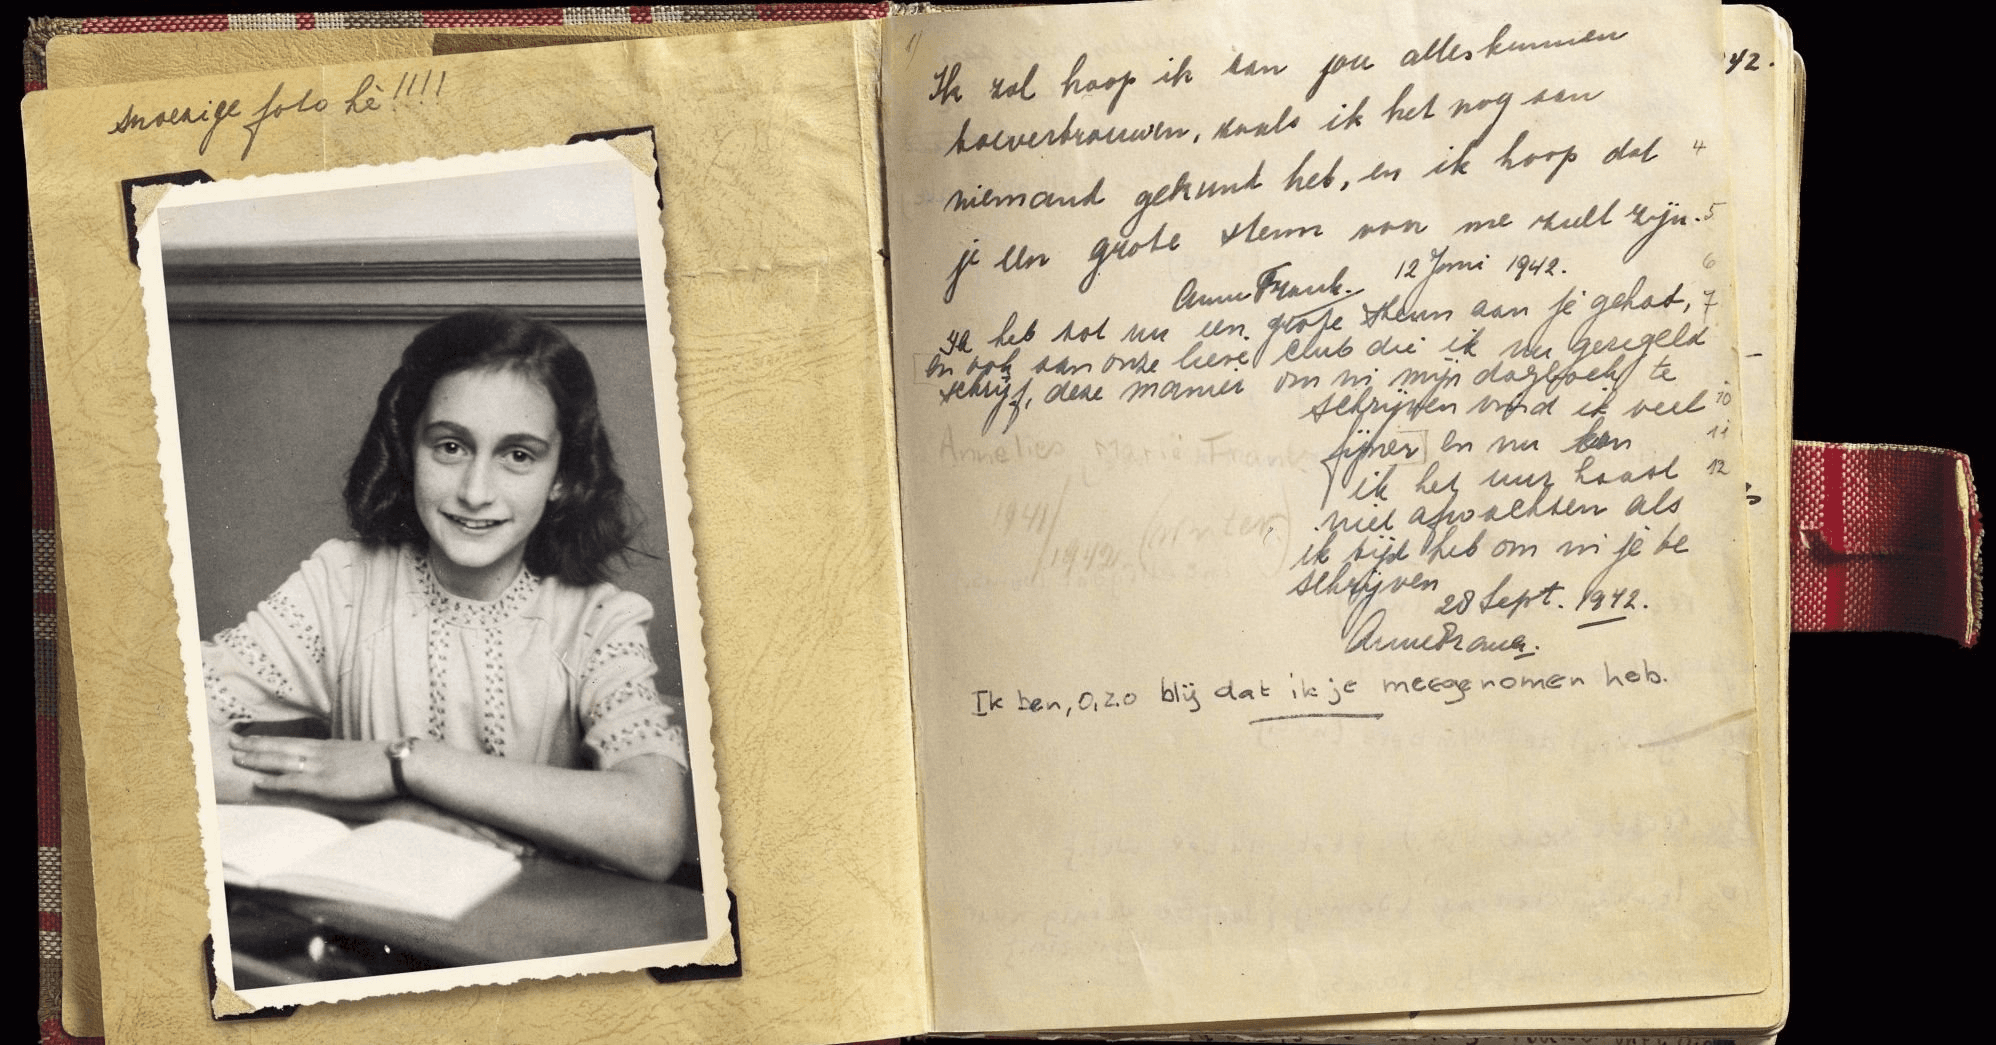 snoezige foto hè!!!!
Ik zal hoop ik aan jou alles kunnen
toevertrouwen, zoals ik het nog aan
niemand gekund heb, en ik hoop dat
je een grote steun voor me zult zijn.
Anne Frank. 12 Juni 1942.
Ik heb tot nu een grote steun aan je gehad,
en ook aan onze lieve club die ik nu geregeld
schrijf, deze manier om in mijn dagboek te
schrijven vind ik veel
fijner en nu kan
ik het uur haast
niet afwachten als
ik tijd heb om in je te
schrijven
28 Sept. 1942.
Anne Frank.
Ik ben, o, zo blij dat ik je meegenomen heb.
Annelies Marie Frank
1941/
/1942 (Winter.)
42.
4
5
6
7
10
11
12